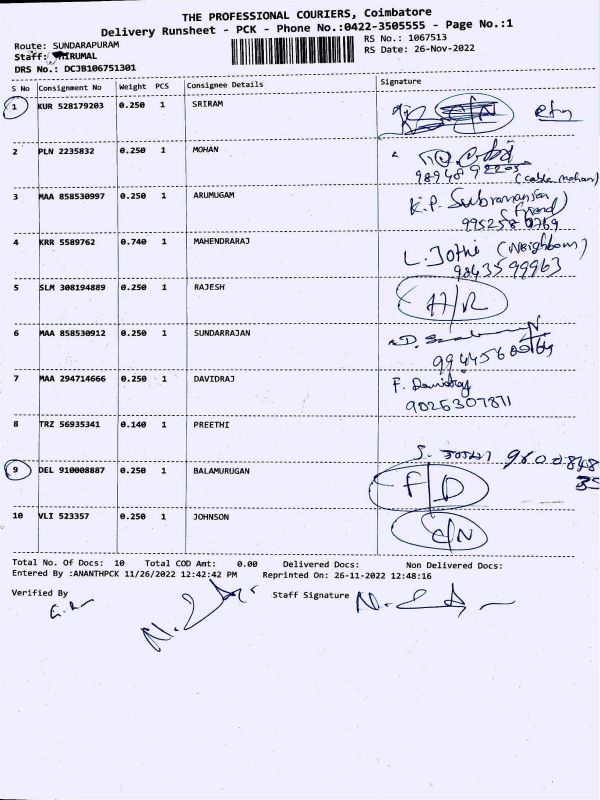 THE PROFESSIONAL COURIERS, Coimbatore
Delivery Runsheet - PCK - Phone No.:0422-3505555 - Page No.:1
Route: SUNDARAPURAM RS No.: 1067513
Staff: RS Date: 26-Nov-2022
DRS No.: DCJB106751301
S No Consignment No Weight PCS Consignee Details Signature
1 KUR 528179203 0.250 1 SRIRAM
2 PLN 2235832 0.250 1 MOHAN
(cable mohan)
3 MAA 858530997 0.250 1 ARUMUGAM K.P. Subramanian
(friend)
4 KRR 5589762 0.740 1 MAHENDRARAJ L. Jothi (Neighbour)
9843599963
5 SLM 308194889 0.250 1 RAJESH
6 MAA 858530912 0.250 1 SUNDARRAJAN
7 MAA 294714666 0.250 1 DAVIDRAJ F. Davidraj
9026307811
8 TRZ 56935341 0.140 1 PREETHI
9 DEL 910008887 0.250 1 BALAMURUGAN F/D
10 VLI 523357 0.250 1 JOHNSON
Total No. Of Docs: 10 Total COD Amt: 0.00 Delivered Docs: Non Delivered Docs:
Entered By :ANANTHPCK 11/26/2022 12:42:42 PM Reprinted On: 26-11-2022 12:48:16
Verified By Staff Signature